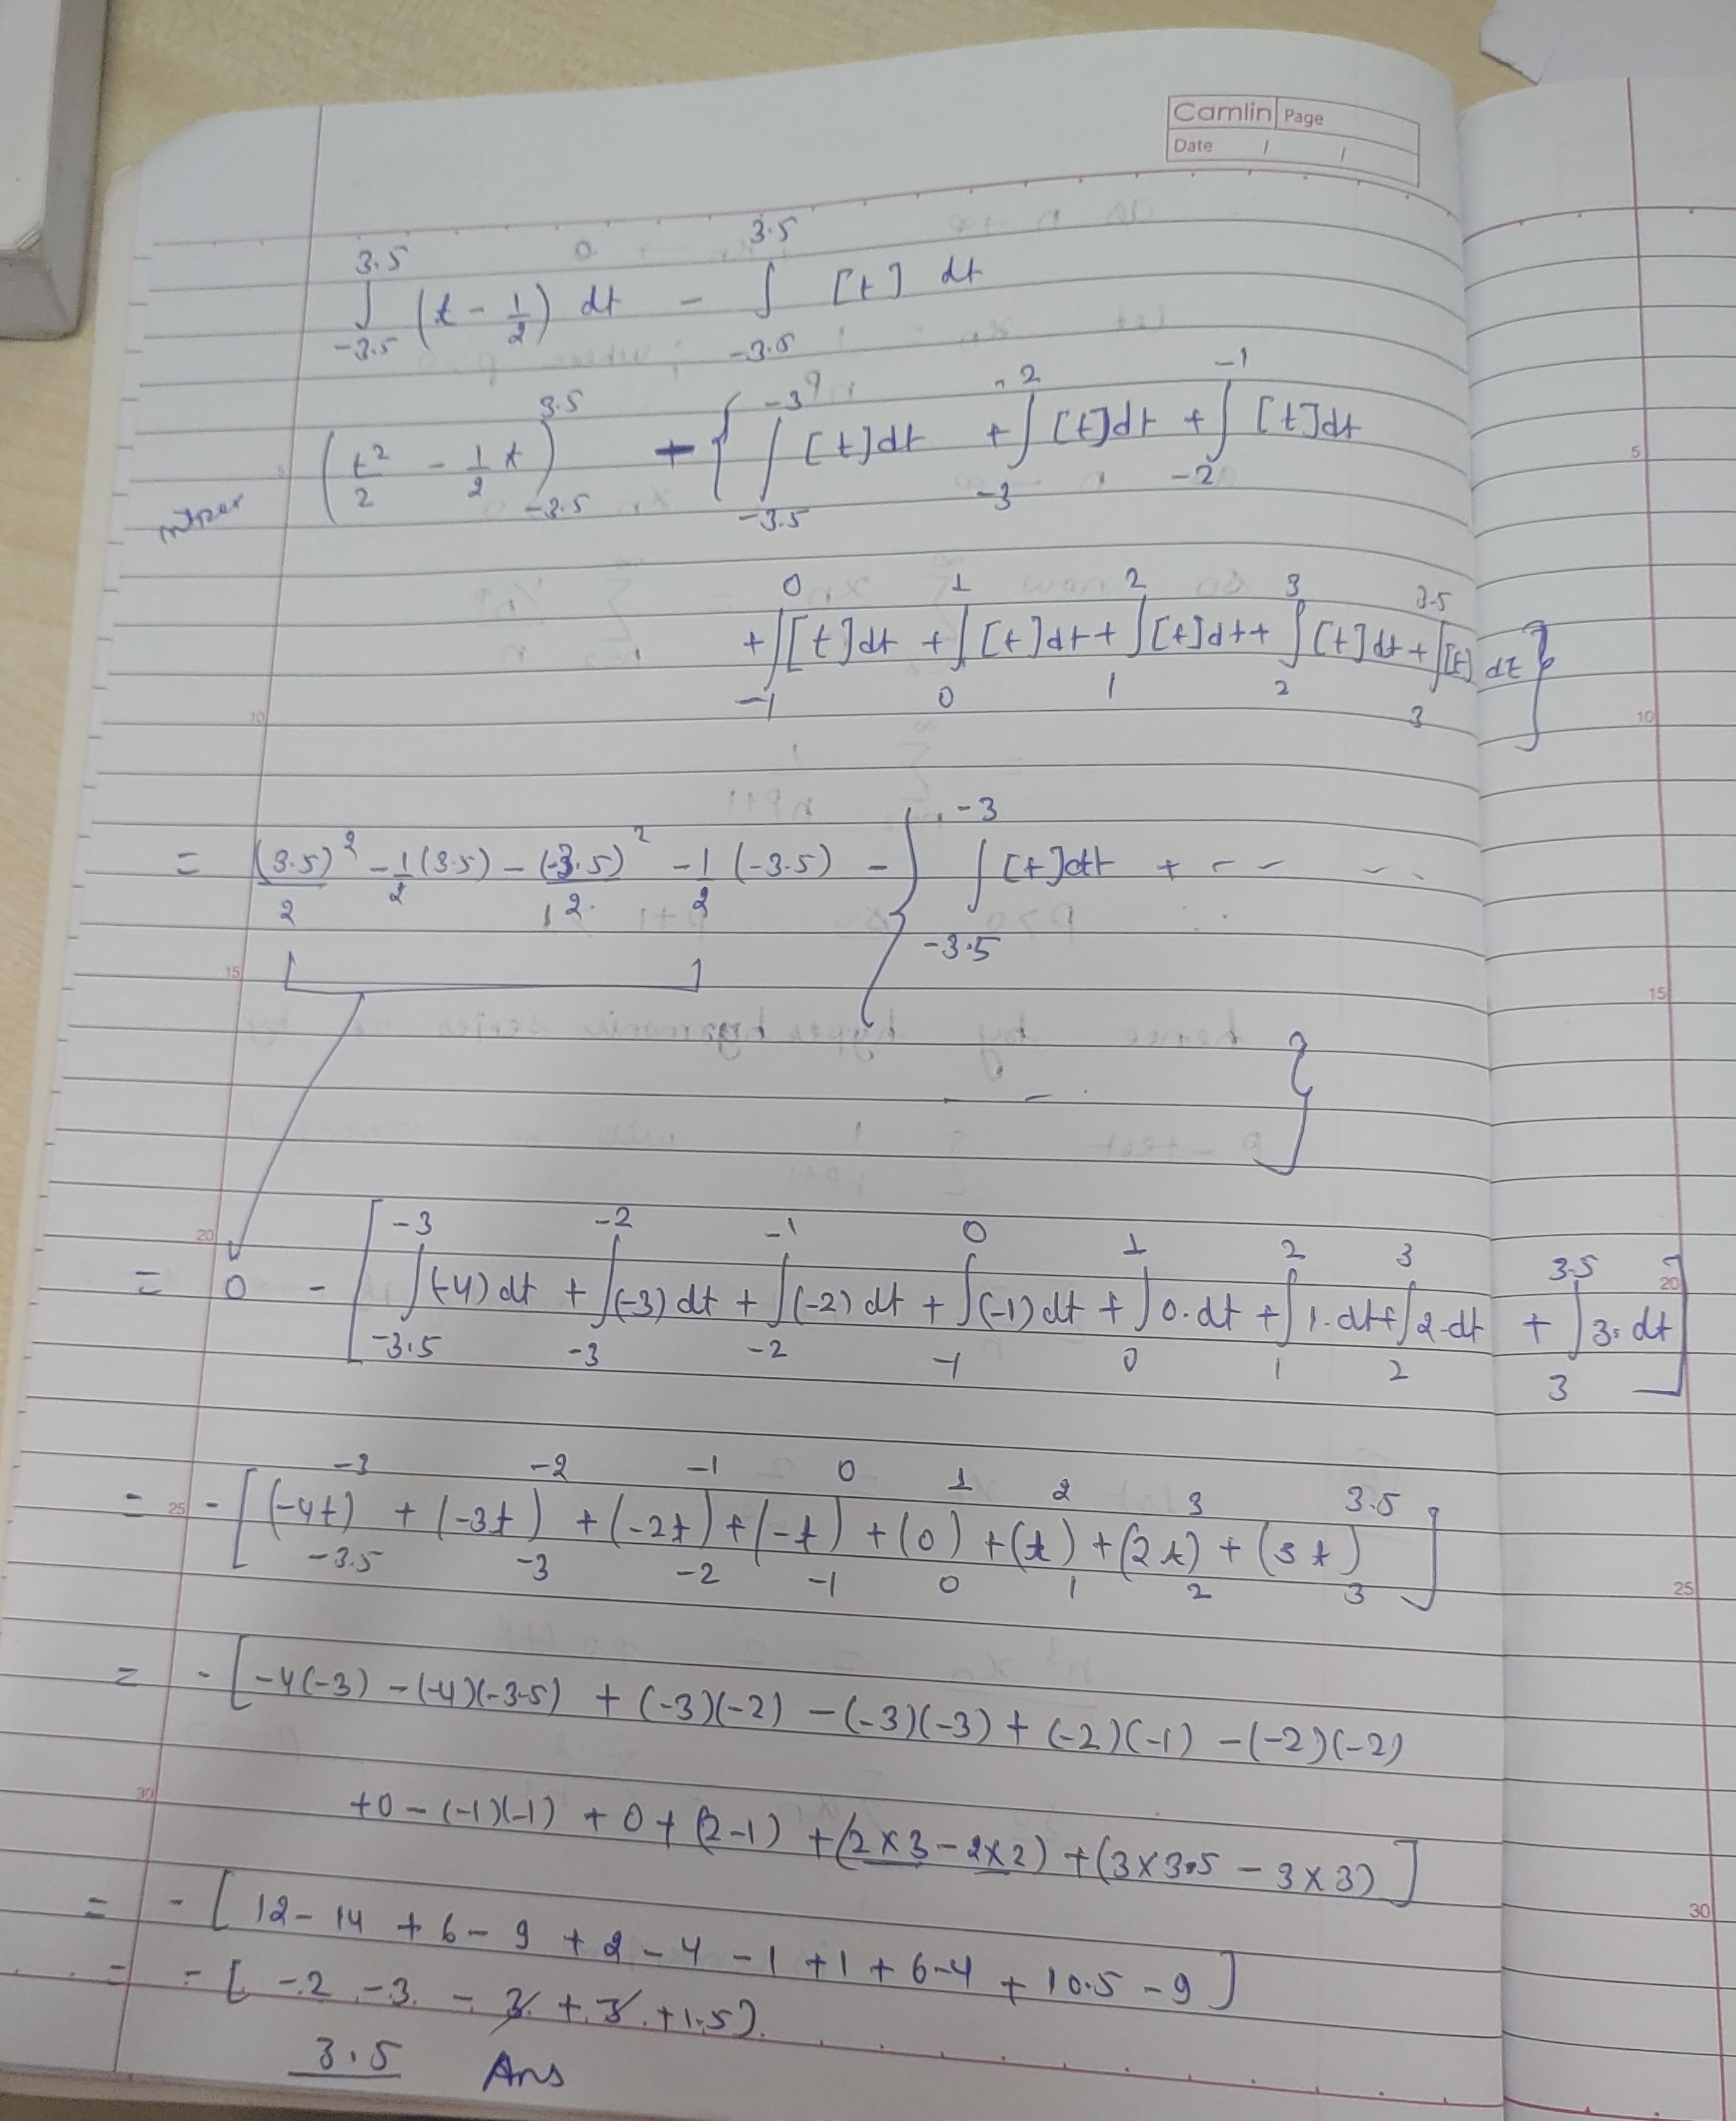 Camlin Page
Date / /
∫_{-3.5}^{3.5} (t - 1/2) dt - ∫_{-3.5}^{3.5} [t] dt
(t²/2 - 1/2 t)_{-3.5}^{3.5} - { ∫_{-3.5}^{-3} [t]dt + ∫_{-3}^{-2} [t]dt + ∫_{-2}^{-1} [t]dt
+ ∫_{-1}^{0} [t]dt + ∫_{0}^{1} [t]dt + ∫_{1}^{2} [t]dt + ∫_{2}^{3} [t]dt + ∫_{3}^{3.5} [t] dt }
= (3.5)²/2 - 1/2 (3.5) - (-3.5)²/2 - 1/2 (-3.5) - { ∫_{-3.5}^{-3} [t]dt + - - - -
- - }
= 0 - [ ∫_{-3.5}^{-3} (-4) dt + ∫_{-3}^{-2} (-3) dt + ∫_{-2}^{-1} (-2) dt + ∫_{-1}^{0} (-1) dt + ∫_{0}^{1} 0.dt + ∫_{1}^{2} 1.dt + ∫_{2}^{3} 2.dt + ∫_{3}^{3.5} 3.dt ]
= - [ (-4t)_{-3.5}^{-3} + (-3t)_{-3}^{-2} + (-2t)_{-2}^{-1} + (-t)_{-1}^{0} + (0)_{0}^{1} + (t)_{1}^{2} + (2t)_{2}^{3} + (3t)_{3}^{3.5} ]
= - [ -4(-3) - (-4)(-3.5) + (-3)(-2) - (-3)(-3) + (-2)(-1) - (-2)(-2)
+0 - (-1)(-1) + 0 + (2-1) + (2×3 - 2×2) + (3×3.5 - 3×3) ]
= - [ 12 - 14 + 6 - 9 + 2 - 4 - 1 + 1 + 6 - 4 + 10.5 - 9 ]
= - [ -2 - 3 - 3 + 3 + 1.5 ]
3.5 Ans
5
10
15
20
25
30
5
10
15
20
25
30